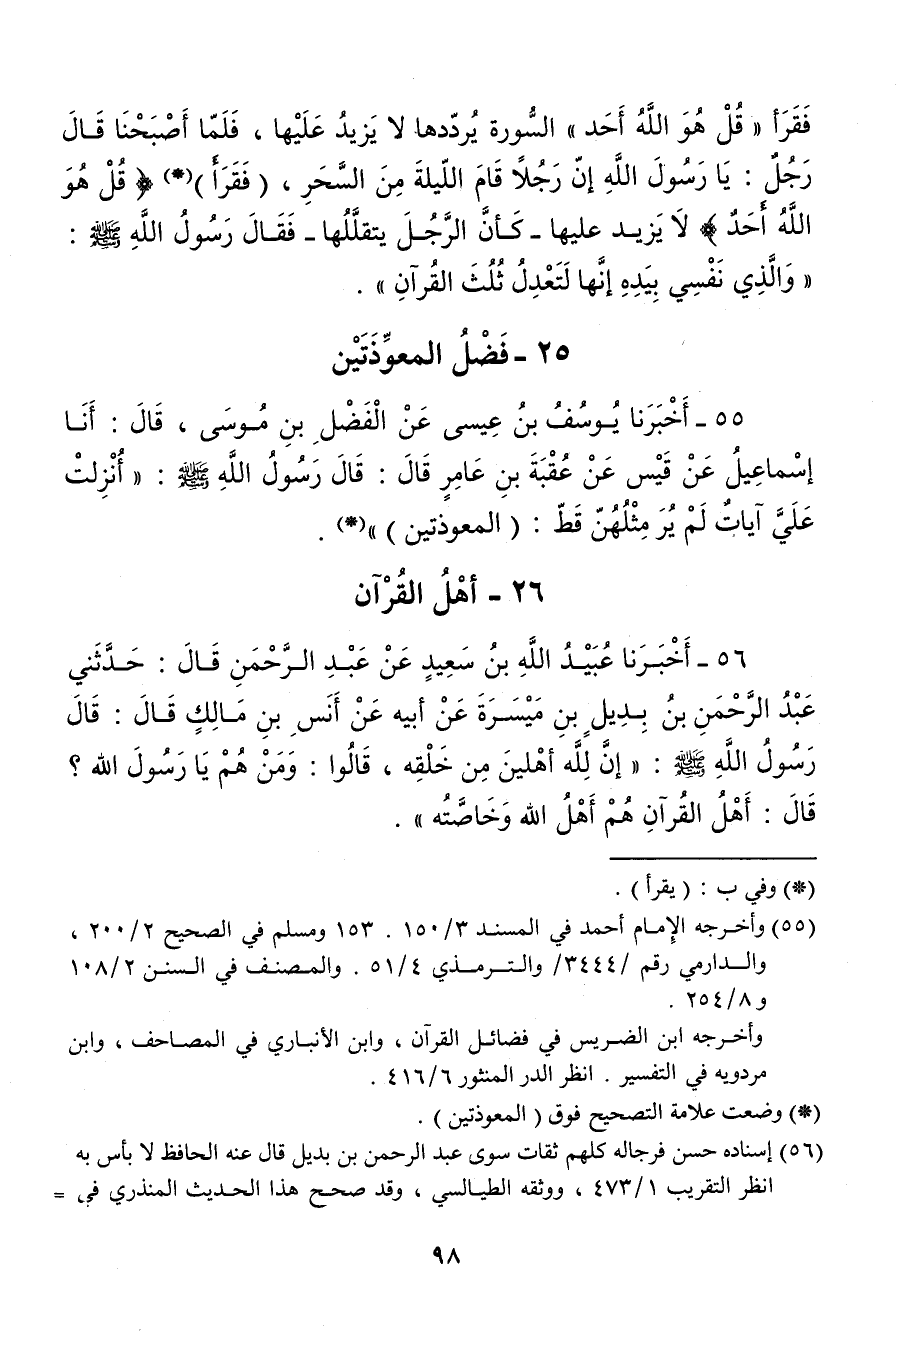 فَقَرَأ « قُلْ هُوَ اللَّهُ أَحَد » السُّورة يُردّدها لا يَزيدُ عَلَيْها ، فَلَمّا أَصْبَحْنَا قَـالَ
رَجُلٌ : يَا رَسُولَ اللَّهِ إنّ رَجُلاً قَامَ اللّيلةَ مِنَ السَّحَرِ ، ( فَقَرَأَ )(*) ﴿ قُلْ هُوَ
اللَّهُ أَحَدٌ ﴾ لَا يَزيـد عليها ـ كـأنَّ الرَّجُـلَ يتقلَّلُها ـ فَقَـالَ رَسُولُ اللَّهِ ﷺ :
« وَالَّذِي نَفْسِي بِيَدِهِ إنَّها لَتَعْدِلُ ثُلُثَ القُرآنِ » .
٢٥ - فَضْلُ المعوِّذَتَيْن
٥٥ ـ أَخْبَرَنا يُـوسُفُ بنُ عِيسى عَنْ الْفَضْلِ بنِ مُـوسَى ، قَالَ : أَنَـا
إسْماعِيلُ عَنْ قَيْس عَنْ عُقْبَةَ بنِ عَامِرٍ قَالَ : قَالَ رَسُولُ اللَّهِ ﷺ : « أُنْزِلتْ
عَلَيَّ آيَاتٌ لَمْ يُرَ مِثْلُهُنّ قَطّ : ( المعوذتين ) »(*) .
٢٦ - أهْلُ القُرْآن
٥٦ ـ أَخْبَـرَنا عُبَيْـدُ اللَّهِ بنُ سَعِيدٍ عَنْ عَبْـدِ الـرَّحْمَنِ قَـالَ : حَـدَّثَني
عَبْدُ الرَّحْمَنِ بنُ بـدِيلِ بنِ مَيْسَـرَةَ عَنْ أبيه عَنْ أَنَس بنِ مَـالِكٍ قَـالَ : قَالَ
رَسُولُ اللَّهِ ﷺ : « إنَّ لِلَّه أهْلينَ مِن خَلْقِه ، قَالُوا : وَمَنْ هُمْ يَا رَسُولَ الله ؟
قَالَ : أَهْلُ القُرآنِ هُمْ أَهْلُ الله وَخَاصَّتُه » .
(*) وفي ب : ( يقرأ ) .
(٥٥) وأخـرجه الإمـام أحمد في المسنـد ١٥٠/٣ . ١٥٣ ومسلم في الصحيح ٢٠٠/٢ ،
والـدارمي رقم /٣٤٤٤/ والتـرمـذي ٥١/٤ . والمصنف في السنن ١٠٨/٢
و ٢٥٤/٨ .
وأخـرجه ابن الضـريس في فضائـل القرآن ، وابن الأنبـاري في المصـاحف ، وابن
مردويه في التفسير . انظر الدر المنثور ٤١٦/٦ .
(*) وضعت علامة التصحيح فوق ( المعوذتين ) .
(٥٦) إسناده حسن فرجاله كلهم ثقات سوى عبد الرحمن بن بديل قال عنه الحافظ لا بأس به
انظر التقريب ٤٧٣/١ ، ووثقه الطيالسي ، وقد صحح هذا الحديث المنذري في =
٩٨